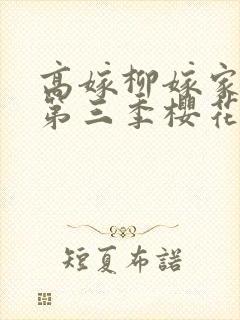 高嫁柳嫁家
第三季樱花
短夏布諾